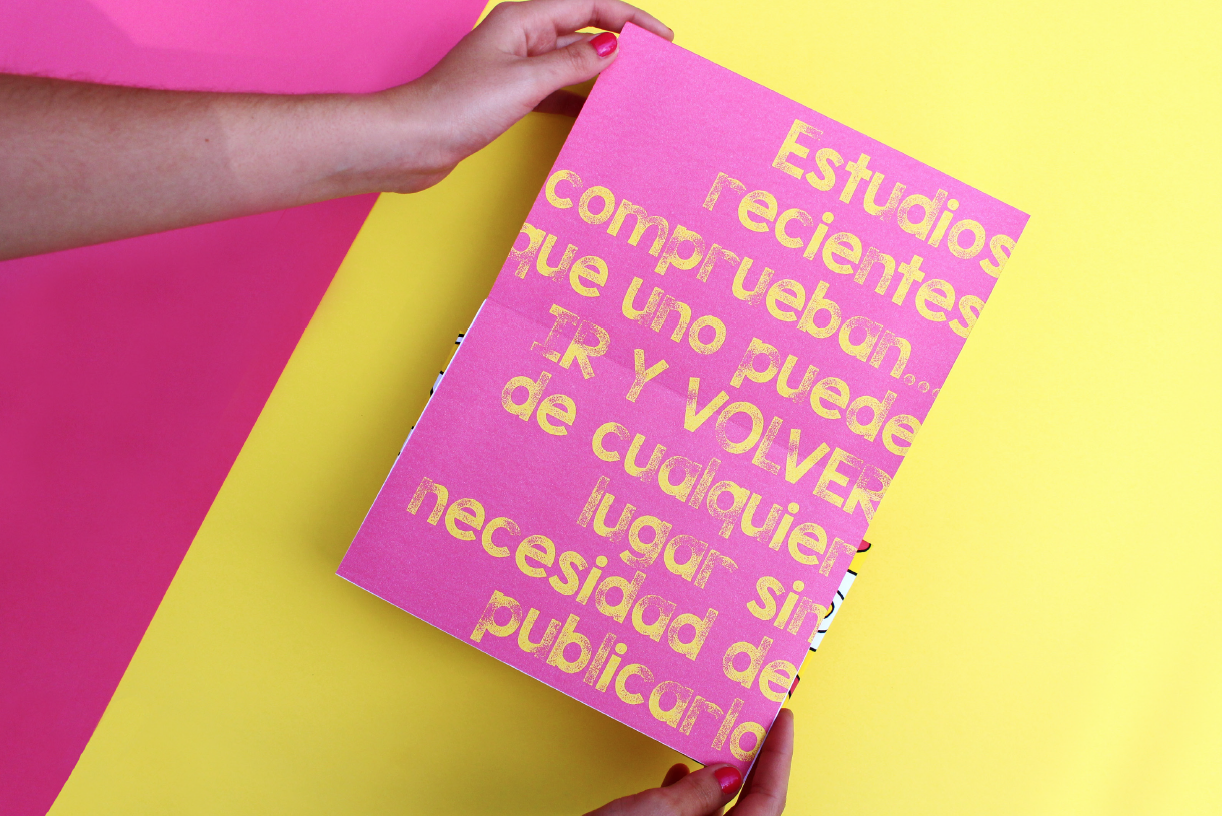 Estudios
recientes
comprueban...
que uno puede
IR Y VOLVER
de cualquier
lugar sin
necesidad de
publicarlo